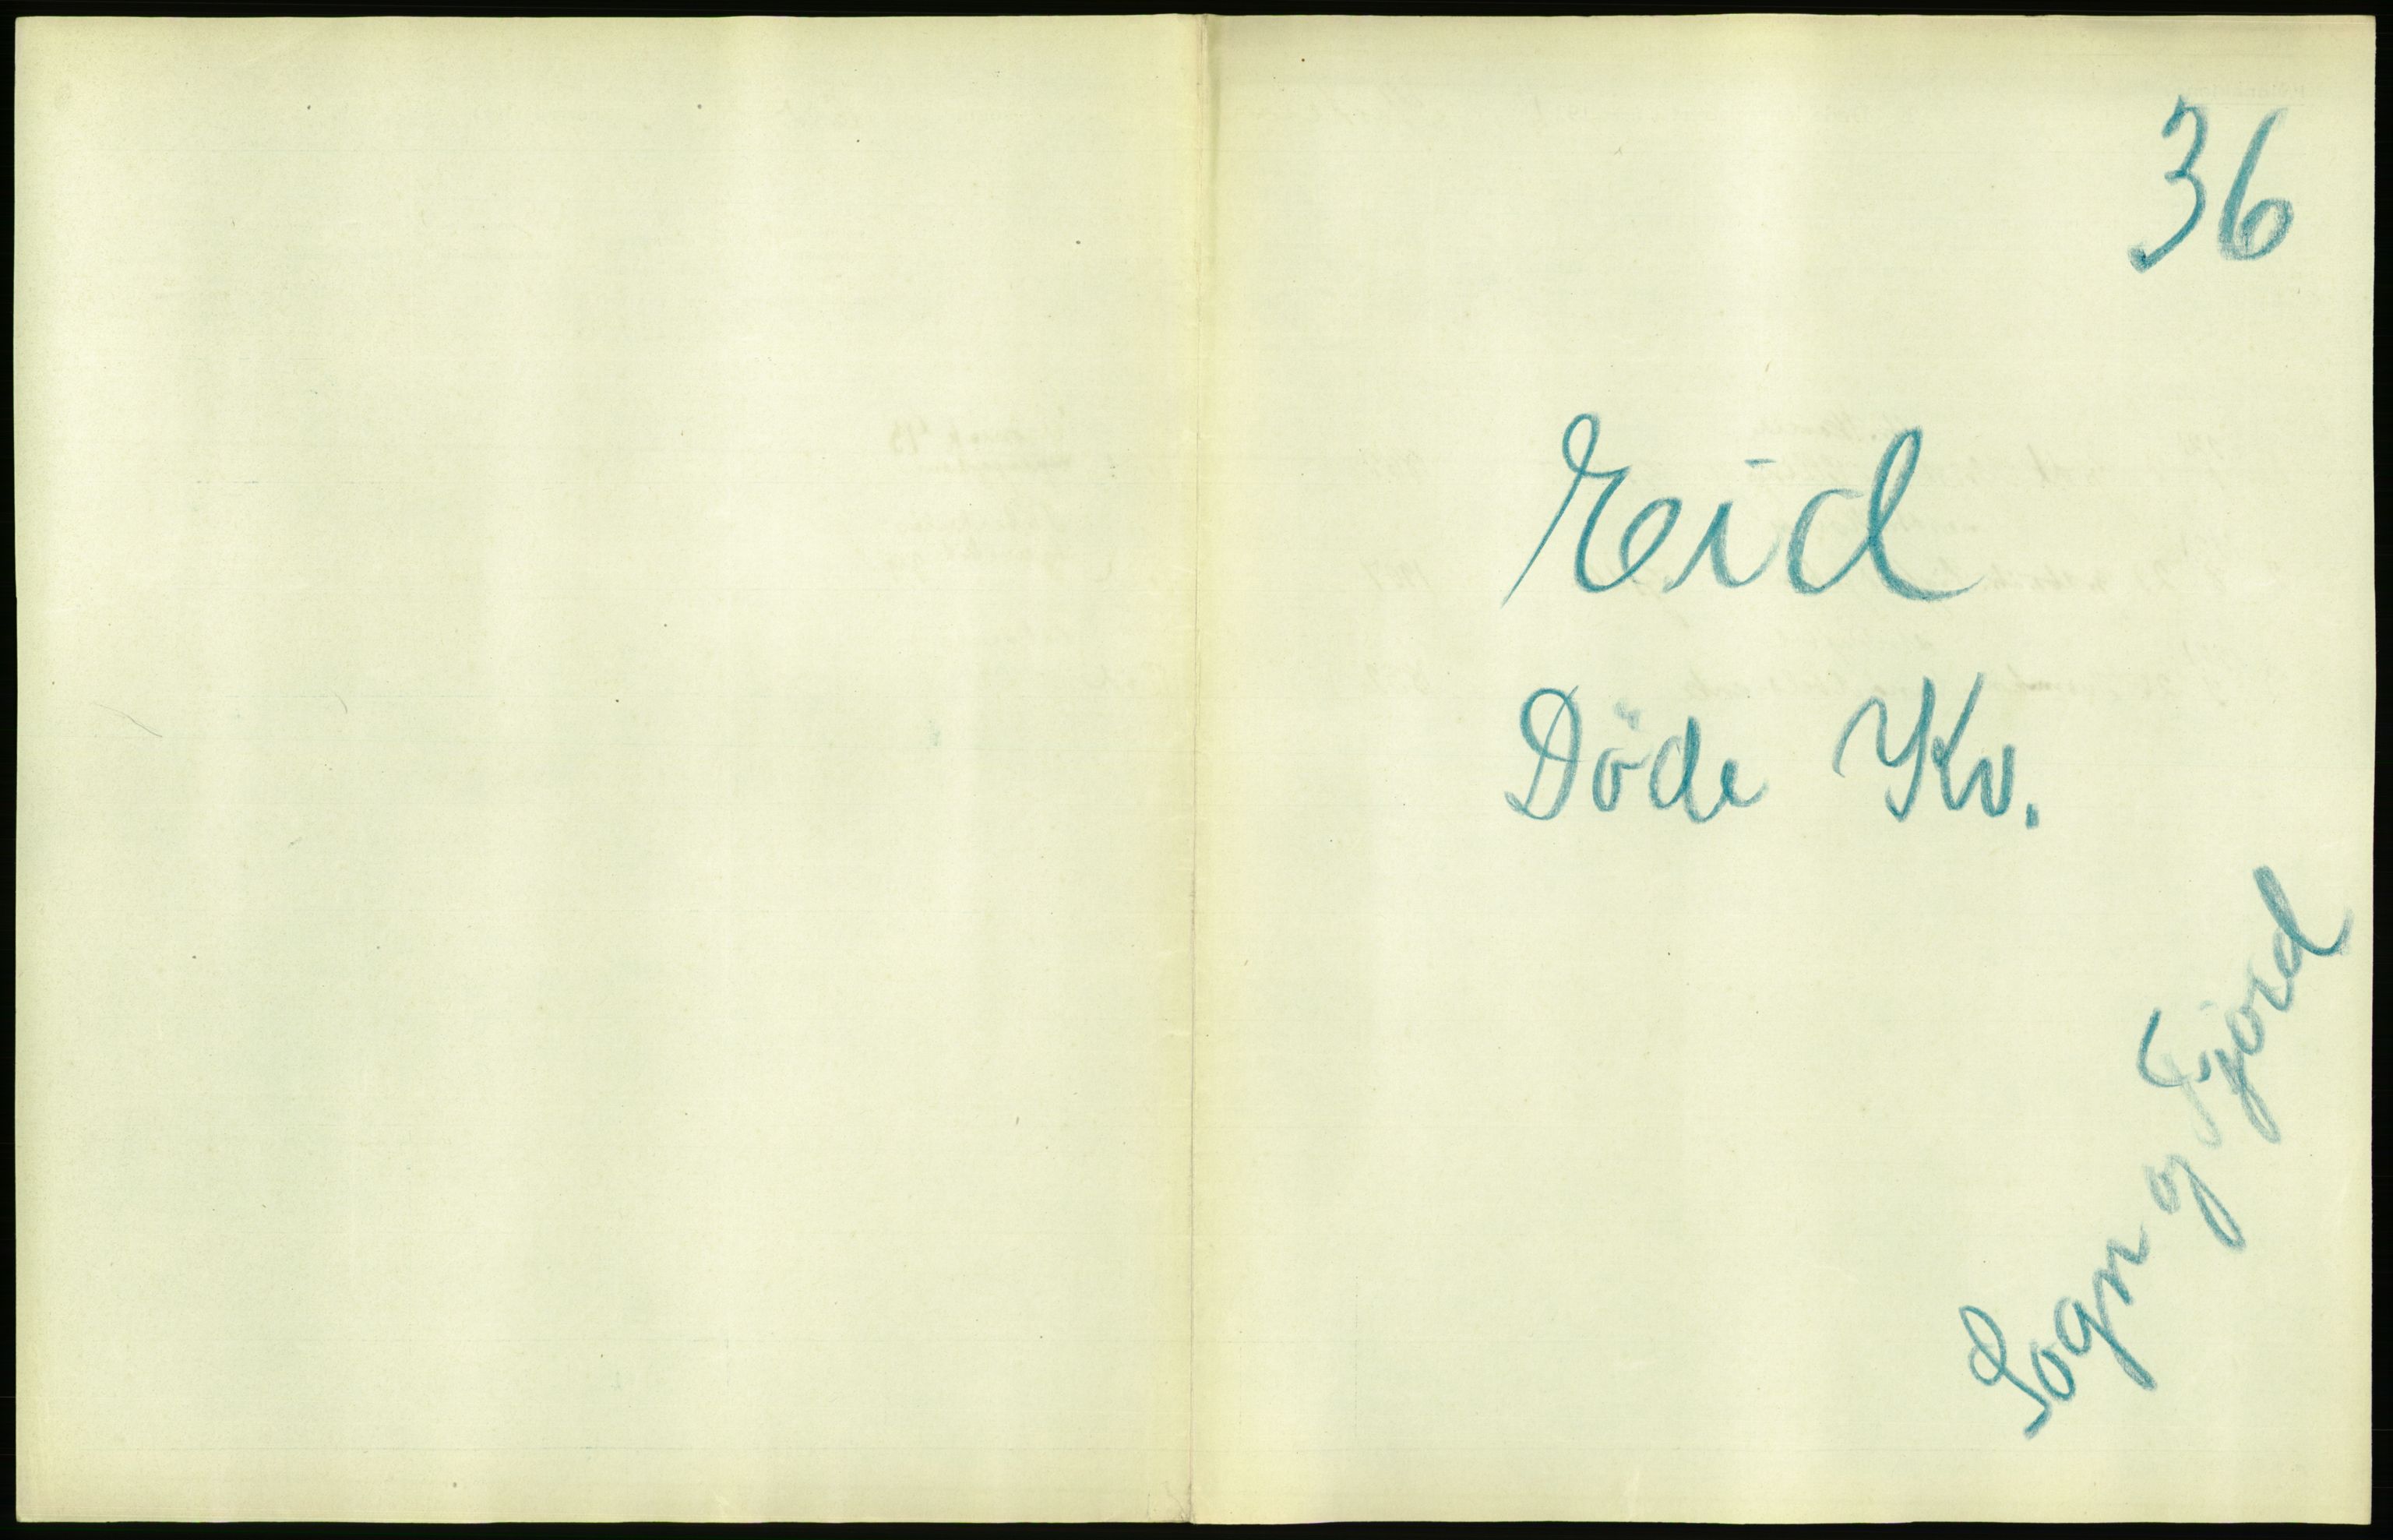 36
Eid
Döde Kv.
Sogn og Fjord